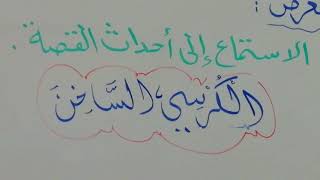 العرض :
الاستماع إلى أحداث القصة .
الْكُرْسِي السَّاخِن